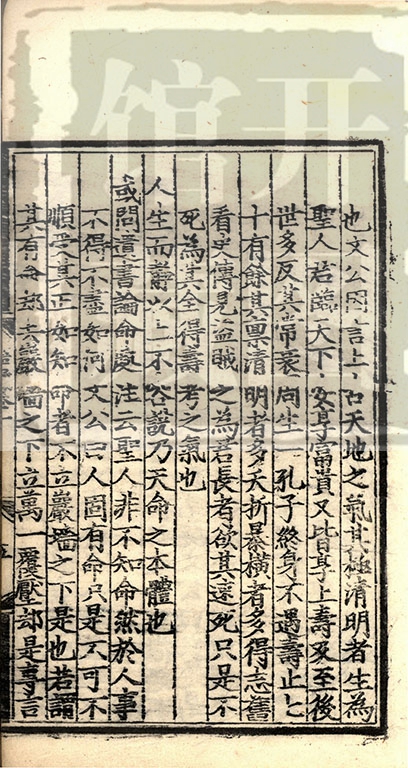 也文公因言上古天地之氣其極清明者生為
聖人若臨天下安享富貴又皆享上壽及至後
世多反其常衰周生一孔子終身不遇壽止七
十有餘其禀清明者多夭折暴橫者多得志舊
看史傳見盗賊之為君長者欲其速死只是不
死為其全得壽考之氣也
人生而靜以上不容說乃天命之本體也
或問遺書論命處注云聖人非不知命然於人事
不得不盡如何文公曰人固有命只是不可不
順受其正如知命者不立巖墻之下是也若謂
其有命却去巖墻之下立萬一覆壓却是專言